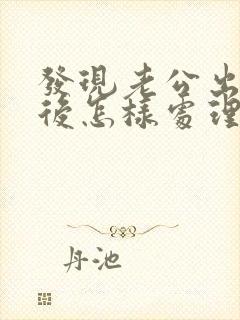 發現老公出
後怎樣處理
丹池